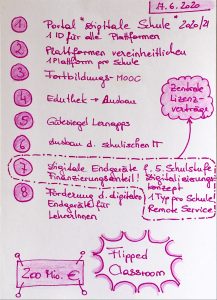 17.6.2020
1 Portal "Digitale Schule" 2020/21
1 ID für alle Plattformen
2 Plattformen vereinheitlichen
1 Plattform pro Schule
3 Fortbildungs-MOOC
4 Eduthek → Ausbau
5 Gütesiegel Lernapps
6 Ausbau d. schulischen IT
7 Digitale Endgeräte f. 5. Schulstufe
Finanzierungsanteil!
Digitalisierungs-
konzept
1 Typ pro Schule!
Remote Service
8 Förderung d. digitalen
Endgeräte für
LehrerInnen
Zentrale
Lizenz-
verträge
200 Mio. €
Flipped
Classroom